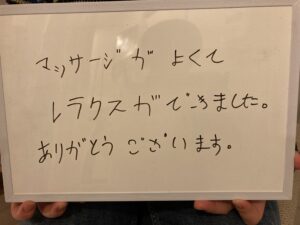 マッサージが よくて
レラクスができました。
ありがとう ございます。